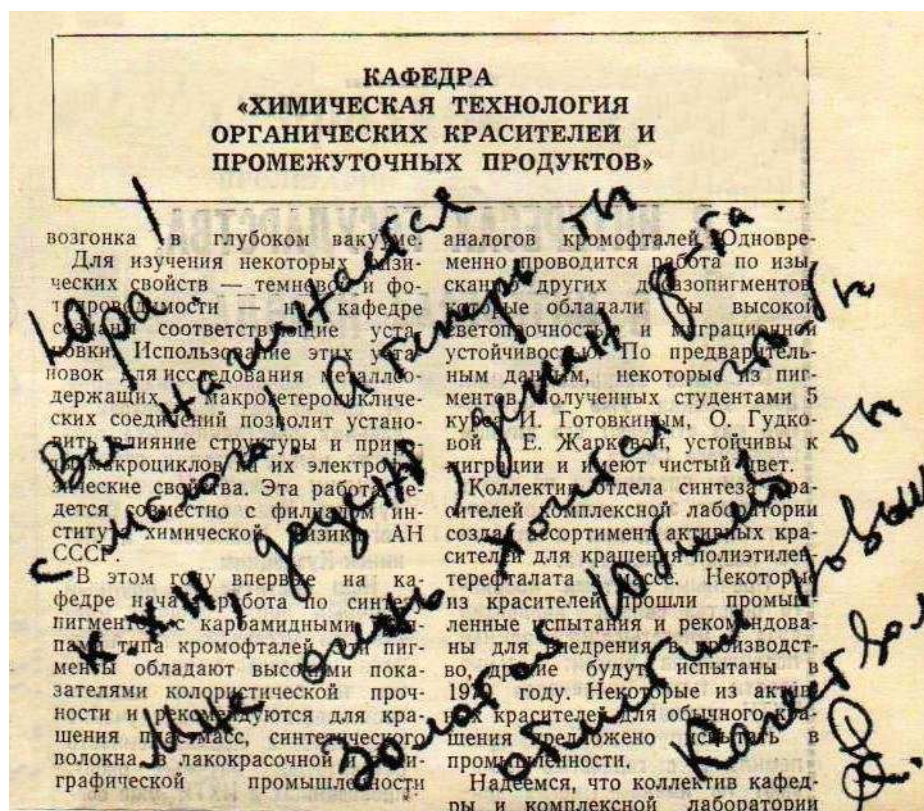 КАФЕДРА
«ХИМИЧЕСКАЯ ТЕХНОЛОГИЯ
ОРГАНИЧЕСКИХ КРАСИТЕЛЕЙ И
ПРОМЕЖУТОЧНЫХ ПРОДУКТОВ»
возгонка в глубоком вакууме.
Для изучения некоторых физи-
ческих свойств — темневой и фо-
топроводимости — на кафедре
созданы соответствующие уста-
новки. Использование этих уста-
новок для исследования металлсо-
держащих макрогетероцикличе-
ских соединений позволит устано-
вить влияние структуры и приро-
ды макроциклов на их электрофи-
зические свойства. Эта работа ве-
дется совместно с филиалом ин-
ститута химической физики АН
СССР.
В этом году впервые на ка-
федре начата работа по синтезу
пигментов с карбамидными груп-
пами типа кромофталей. Эти пиг-
менты обладают высокими пока-
зателями колористической проч-
ности и рекомендуются для кра-
шения пластмасс, синтетического
волокна, в лакокрасочной и поли-
графической промышленности
аналогов кромофталей. Одновре-
менно проводится работа по изы-
сканию других дисазопигментов,
которые обладали бы высокой
светопрочностью и миграционной
устойчивостью. По предваритель-
ным данным, некоторые из пиг-
ментов, полученных студентами 5
курса И. Готовкиным, О. Гудко-
вой и Е. Жарковой, устойчивы к
миграции и имеют чистый цвет.
Коллектив отдела синтеза кра-
сителей комплексной лаборатории
создал ассортимент активных кра-
сителей для крашения полиэтилен-
терефталата в массе. Некоторые
из красителей прошли промыш-
ленные испытания и рекомендова-
ны для внедрения в производст-
во, другие будут испытаны в
1979 году. Некоторые из актив-
ных красителей для обычного кра-
шения предложено испытать в
промышленности.
Надеемся, что коллектив кафед-
ры и комплексной лаборатории
Юра!
Все начинается
с малого! А теперь ты
к.х.н., доцент, декан ф-та.
Мне очень хочется чтобы
Золотой Юбилей ты
встретил новым